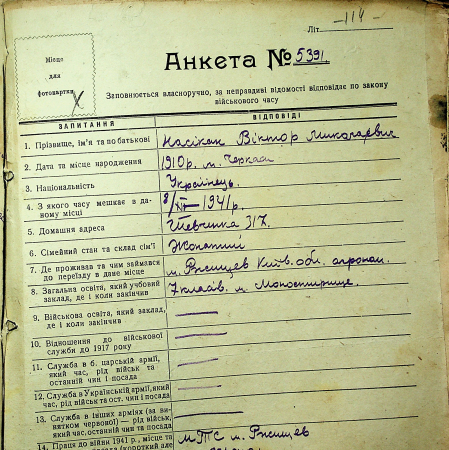 Літ. -114-
Місце
для
фотокартки
Анкета № 5391.
Заповнюється власноручно, за неправдиві відомості відповідає по закону
військового часу
ЗАПИТАННЯ
ВІДПОВІДІ
1. Прізвище, ім'я та по батькові
Насікан Віктор Миколаєвич
2. Дата та місце народження
1910р. м. Черкаси
3. Національність
Українець.
4. З якого часу мешкає в да-
ному місці
8/XI—1941р.
5. Домашня адреса
Шевченка 317.
6. Сімейний стан та склад сім'ї
Жонатий
7. Де проживав та чим займався
до переїзду в дане місце
м. Ржищев Київ. обл. агроном.
8. Загальна освіта, який учбовий
заклад, де і коли закінчив
7 класів. м. Монастирище.
9. Військова освіта, який заклад,
де і коли закінчив
10. Відношення до військової
служби до 1917 року
11. Служба в б. царській армії,
який час, рід військ та
останній чин і посада
12. Служба в Українській армії, який
час, рід військ та ост. чин і посада
13. Служба в інших арміях (за ви-
нятком червоної) — рід військ,
який час, останній чин та посада
14. Праця до війни 1941 р., місце та
посада (короткий але
МТС м. Ржищев